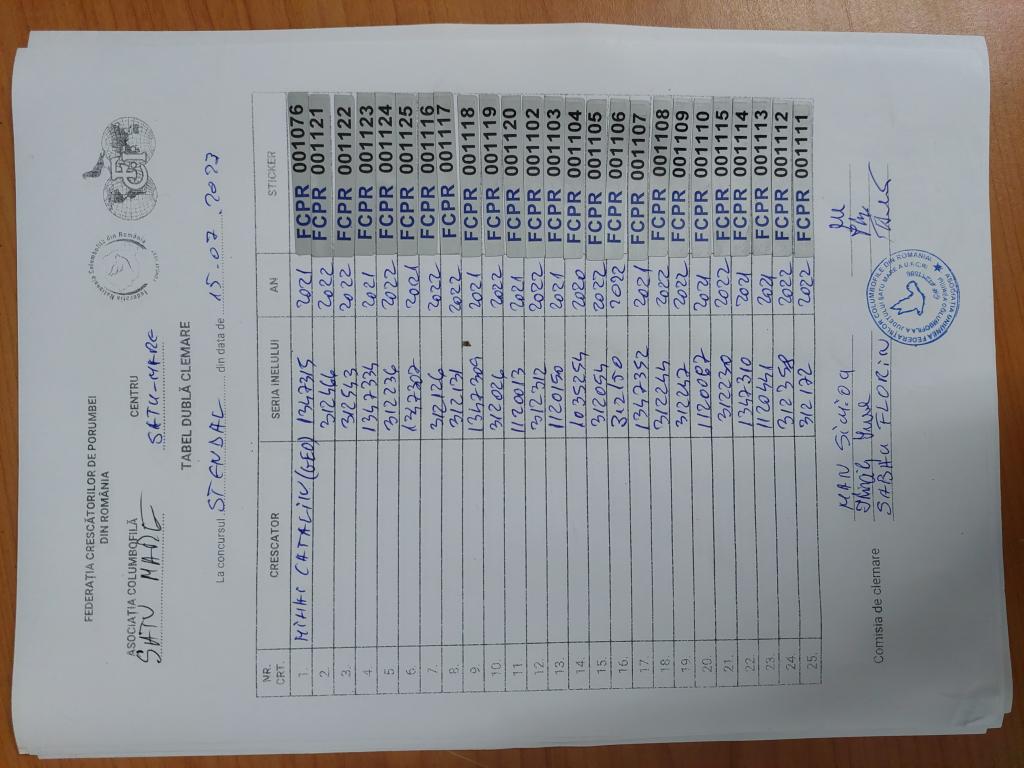 FEDERAȚIA CRESCĂTORILOR DE PORUMBEI
DIN ROMÂNIA
Federația Națională Columbofilă din România
ASOCIAȚIA COLUMBOFILĂ CENTRU
SATU MARE SATU-MARE
TABEL DUBLĂ CLEMARE
La concursul STENDAL din data de 15-07.2023
NR. CRT. CRESCATOR SERIA INELULUI AN STICKER
1. MIHAI CATALIN (GEO) 1347315 2021 FCPR 001076
2. 312466 2022 FCPR 001121
3. 312543 2022 FCPR 001122
4. 1347334 2021 FCPR 001123
5. 312236 2022 FCPR 001124
6. 1347307 2021 FCPR 001125
7. 312126 2022 FCPR 001116
8. 312131 2022 FCPR 001117
9. 1347309 2021 FCPR 001118
10. 312026 2022 FCPR 001119
11. 1120013 2021 FCPR 001120
12. 312312 2022 FCPR 001102
13. 1120150 2021 FCPR 001103
14. 1035254 2020 FCPR 001104
15. 312054 2022 FCPR 001105
16. 312150 2022 FCPR 001106
17. 1347352 2021 FCPR 001107
18. 312244 2022 FCPR 001108
19. 312247 2022 FCPR 001109
20. 1120087 2021 FCPR 001110
21. 312230 2022 FCPR 001115
22. 1347310 2021 FCPR 001114
23. 1120441 2021 FCPR 001113
24. 312358 2022 FCPR 001112
25. 312172 2022 FCPR 001111
Comisia de clemare
MAN
SABAU FLORIN
ASOCIAȚIA UNIUNEA FEDERAȚIILOR COLUMBOFILE DIN ROMANIA